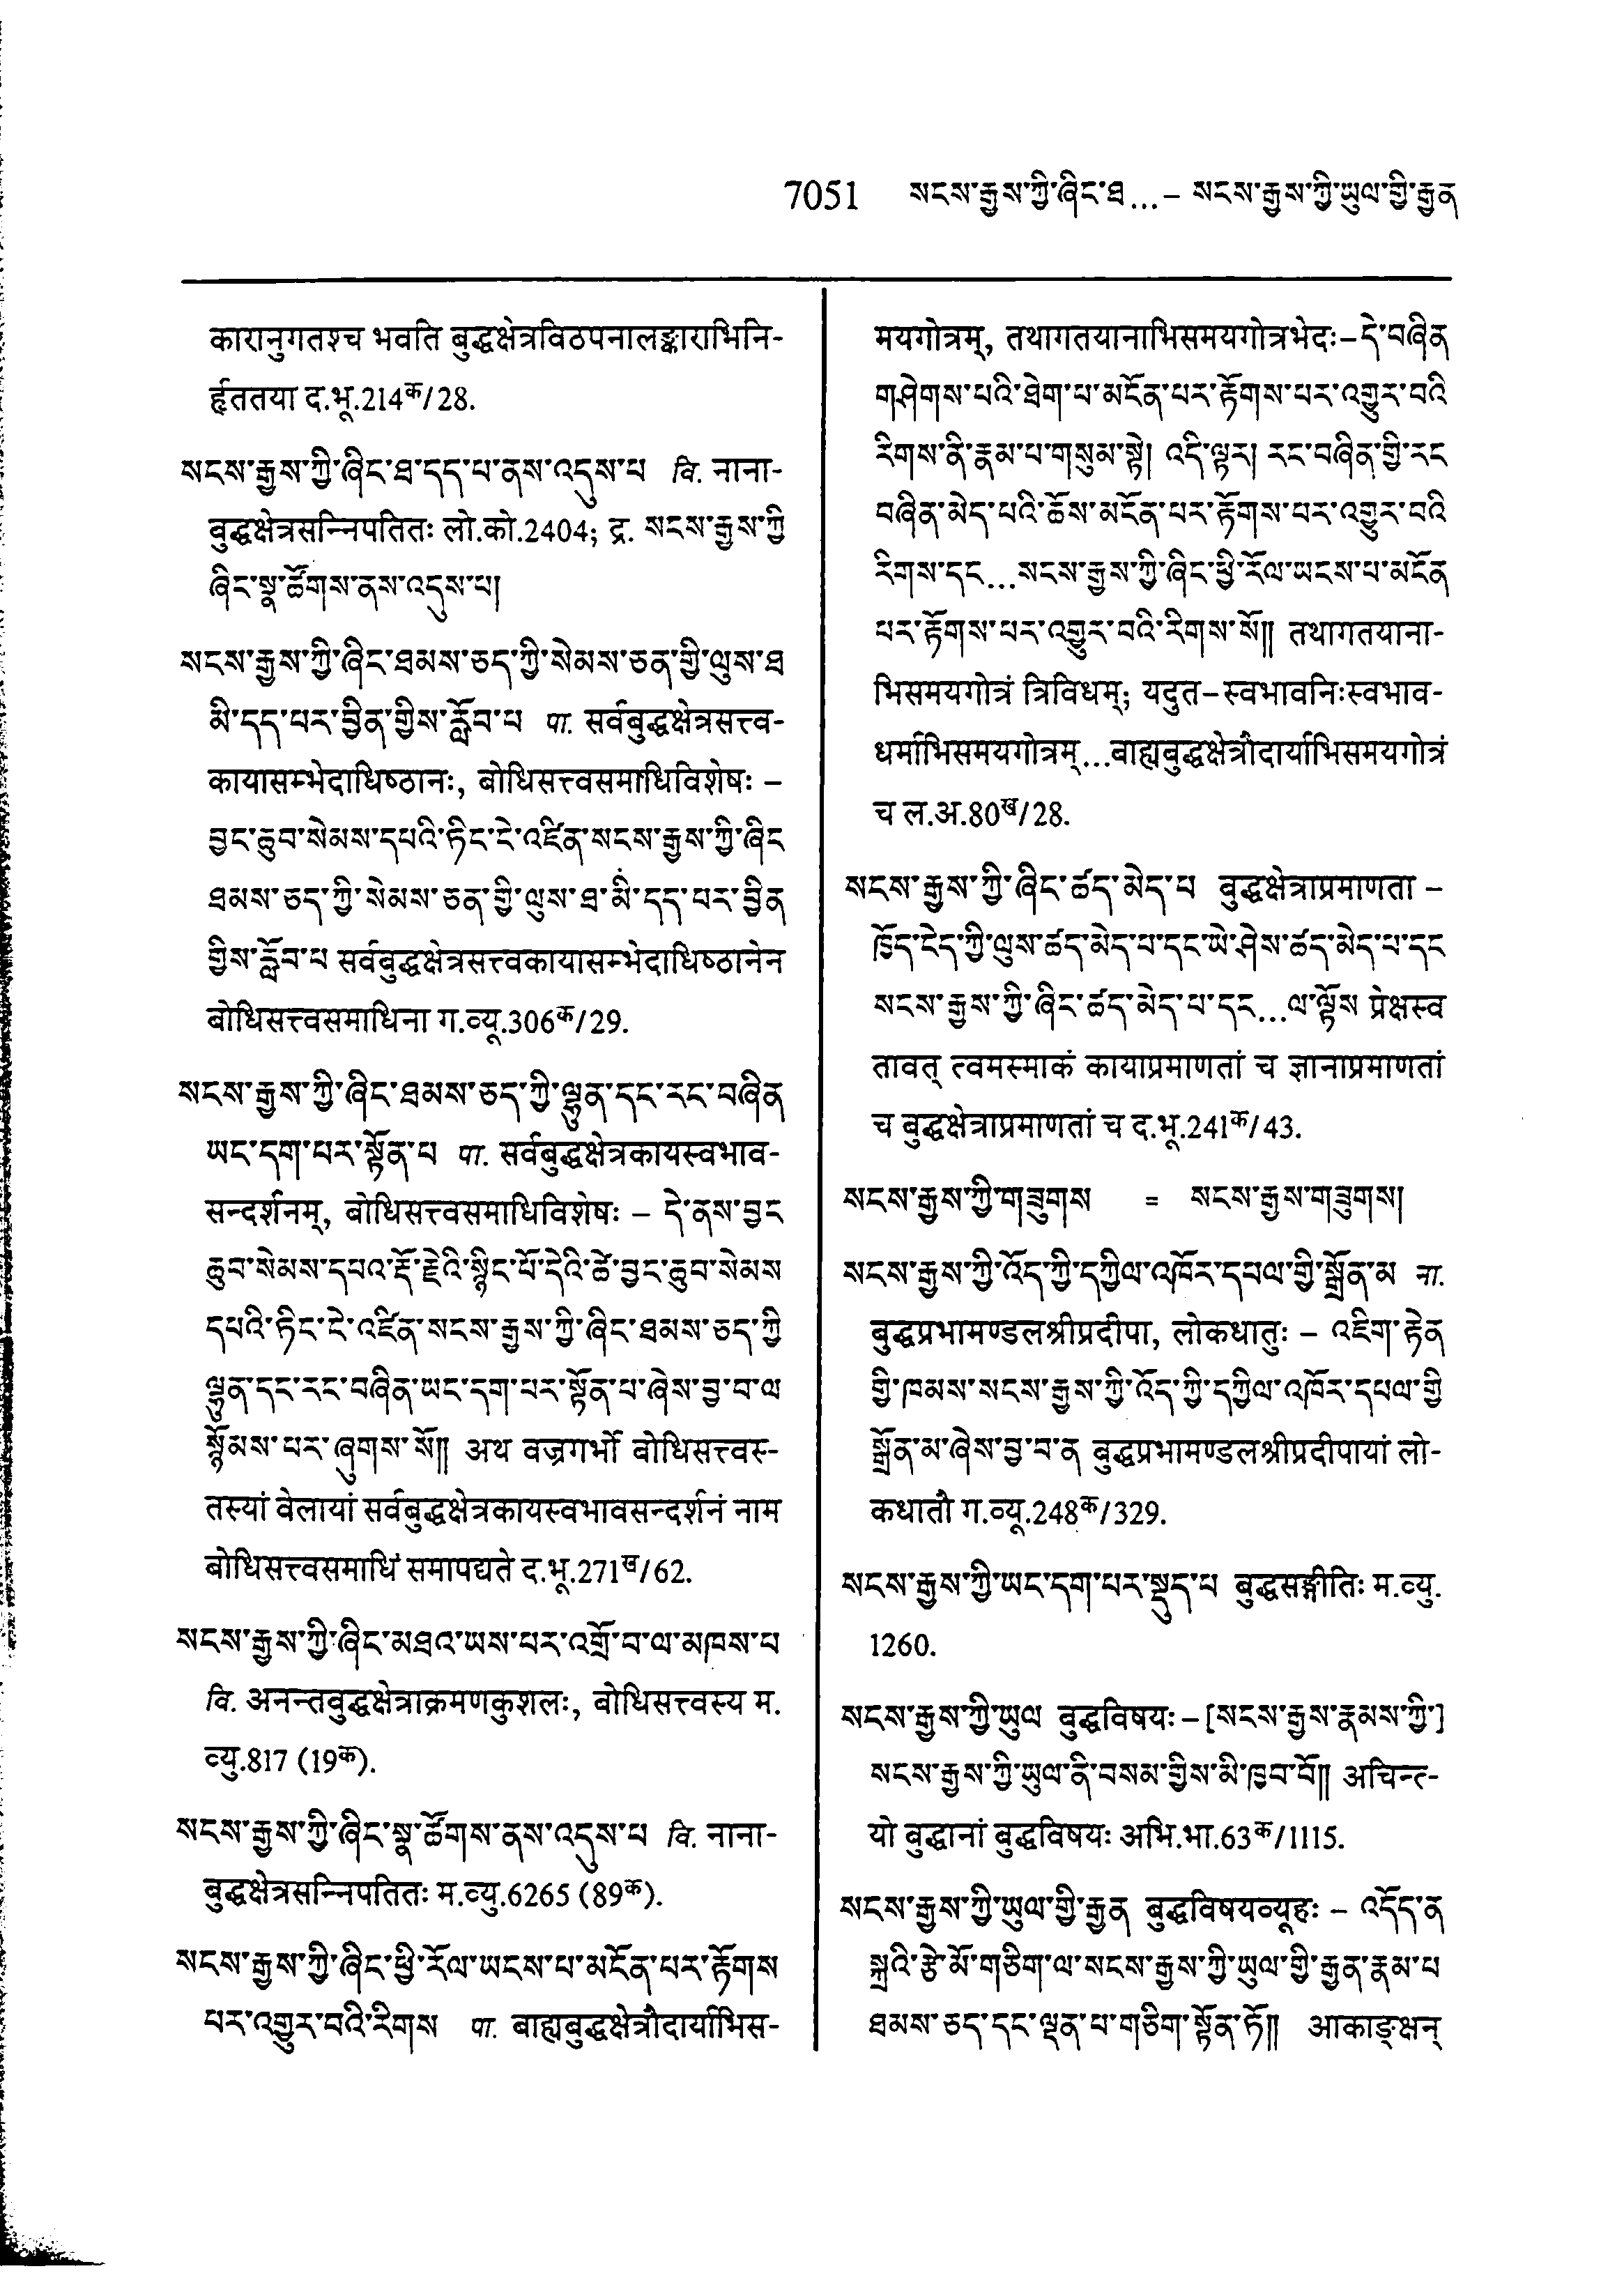 7051 སངས་རྒྱས་ཀྱི་ཞིང་ཐ...– སངས་རྒྱས་ཀྱི་ཡུལ་གྱི་རྒྱན
कारानुगतश्च भवति बुद्धक्षेत्रविठपनालङ्काराभिनि-
र्हृततया द.भू.214क/28.
སངས་རྒྱས་ཀྱི་ཞིང་ཐ་དད་པ་ནས་འདུས་པ वि. नाना-
बुद्धक्षेत्रसन्निपतितः लो.को.2404; द्र. སངས་རྒྱས་ཀྱི
ཞིང་སྣ་ཚོགས་ནས་འདུས་པ།
སངས་རྒྱས་ཀྱི་ཞིང་ཐམས་ཅད་ཀྱི་སེམས་ཅན་གྱི་ལུས་ཐ
མི་དད་པར་བྱིན་གྱིས་རློབ་པ पा. सर्वबुद्धक्षेत्रसत्त्व-
कायासम्भेदाधिष्ठानः, बोधिसत्त्वसमाधिविशेषः –
བྱང་ཆུབ་སེམས་དཔའི་ཏིང་ངེ་འཛིན་སངས་རྒྱས་ཀྱི་ཞིང
ཐམས་ཅད་ཀྱི་སེམས་ཅན་གྱི་ལུས་ཐ་མི་དད་པར་བྱིན
གྱིས་རློབ་པ सर्वबुद्धक्षेत्रसत्त्वकायासम्भेदाधिष्ठानेन
बोधिसत्त्वसमाधिना ग.व्यू.306क/29.
སངས་རྒྱས་ཀྱི་ཞིང་ཐམས་ཅད་ཀྱི་ལྷུན་དང་རང་བཞིན
ཡང་དག་པར་སྟོན་པ पा. सर्वबुद्धक्षेत्रकायस्वभाव-
सन्दर्शनम्, बोधिसत्त्वसमाधिविशेषः – དེ་ནས་བྱང
ཆུབ་སེམས་དཔའ་རྡོ་རྗེའི་སྙིང་པོ་དེའི་ཚེ་བྱང་ཆུབ་སེམས
དཔའི་ཏིང་ངེ་འཛིན་སངས་རྒྱས་ཀྱི་ཞིང་ཐམས་ཅད་ཀྱི
ལྷུན་དང་རང་བཞིན་ཡང་དག་པར་སྟོན་པ་ཞེས་བྱ་བ་ལ
སྙོམས་པར་ཞུགས་སོ།། अथ वज्रगर्भो बोधिसत्त्वस्-
तस्यां वेलायां सर्वबुद्धक्षेत्रकायस्वभावसन्दर्शनं नाम
बोधिसत्त्वसमाधिं समापद्यते द.भू.271ख/62.
སངས་རྒྱས་ཀྱི་ཞིང་མཐའ་ཡས་པར་འགྲོ་བ་ལ་མཁས་པ
वि. अनन्तबुद्धक्षेत्राक्रमणकुशलः, बोधिसत्त्वस्य म.
व्यु.817 (19क).
སངས་རྒྱས་ཀྱི་ཞིང་སྣ་ཚོགས་ནས་འདུས་པ वि. नाना-
बुद्धक्षेत्रसन्निपतितः म.व्यु.6265 (89क).
སངས་རྒྱས་ཀྱི་ཞིང་ཕྱི་རོལ་ཡངས་པ་མངོན་པར་རྟོགས
པར་འགྱུར་བའི་རིགས पा. बाह्यबुद्धक्षेत्रौदार्याभिस-
मयगोत्रम्, तथागतयानाभिसमयगोत्रभेदः–དེ་བཞིན
གཤེགས་པའི་ཐེག་པ་མངོན་པར་རྟོགས་པར་འགྱུར་བའི
རིགས་ནི་རྣམ་པ་གསུམ་སྟེ། འདི་ལྟར། རང་བཞིན་གྱི་རང
བཞིན་མེད་པའི་ཆོས་མངོན་པར་རྟོགས་པར་འགྱུར་བའི
རིགས་དང...སངས་རྒྱས་ཀྱི་ཞིང་ཕྱི་རོལ་ཡངས་པ་མངོན
པར་རྟོགས་པར་འགྱུར་བའི་རིགས་སོ།། तथागतयाना-
भिसमयगोत्रं त्रिविधम्; यदुत–स्वभावनिःस्वभाव-
धर्माभिसमयगोत्रम्...बाह्यबुद्धक्षेत्रौदार्याभिसमयगोत्रं
च ल.अ.80ख/28.
སངས་རྒྱས་ཀྱི་ཞིང་ཚད་མེད་པ बुद्धक्षेत्राप्रमाणता –
ཁྱོད་ངེད་ཀྱི་ལུས་ཚད་མེད་པ་དང་ཡེ་ཤེས་ཚད་མེད་པ་དང
སངས་རྒྱས་ཀྱི་ཞིང་ཚད་མེད་པ་དང...ལ་ལྟོས प्रेक्षस्व
तावत् त्वमस्माकं कायाप्रमाणतां च ज्ञानाप्रमाणतां
च बुद्धक्षेत्राप्रमाणतां च द.भू.241क/43.
སངས་རྒྱས་ཀྱི་གཟུགས = སངས་རྒྱས་གཟུགས།
སངས་རྒྱས་ཀྱི་འོད་ཀྱི་དཀྱིལ་འཁོར་དཔལ་གྱི་སྒྲོན་མ ना.
बुद्धप्रभामण्डलश्रीप्रदीपा, लोकधातुः – འཇིག་རྟེན
གྱི་ཁམས་སངས་རྒྱས་ཀྱི་འོད་ཀྱི་དཀྱིལ་འཁོར་དཔལ་གྱི
སྒྲོན་མ་ཞེས་བྱ་བ་ན बुद्धप्रभामण्डलश्रीप्रदीपायां लो-
कधातौ ग.व्यू.248क/329.
སངས་རྒྱས་ཀྱི་ཡང་དག་པར་སྡུད་པ बुद्धसङ्गीतिः म.व्यु.
1260.
སངས་རྒྱས་ཀྱི་ཡུལ बुद्धविषयः–[སངས་རྒྱས་རྣམས་ཀྱི་]
སངས་རྒྱས་ཀྱི་ཡུལ་ནི་བསམ་གྱིས་མི་ཁྱབ་བོ།། अचिन्त-
यो बुद्धानां बुद्धविषयः अभि.भा.63क/1115.
སངས་རྒྱས་ཀྱི་ཡུལ་གྱི་རྒྱན बुद्धविषयव्यूहः – འདོད་ན
སྐྲའི་རྩེ་མོ་གཅིག་ལ་སངས་རྒྱས་ཀྱི་ཡུལ་གྱི་རྒྱན་རྣམ་པ
ཐམས་ཅད་དང་ལྡན་པ་གཅིག་སྟོན་ཏོ།། आकाङ्क्षन्